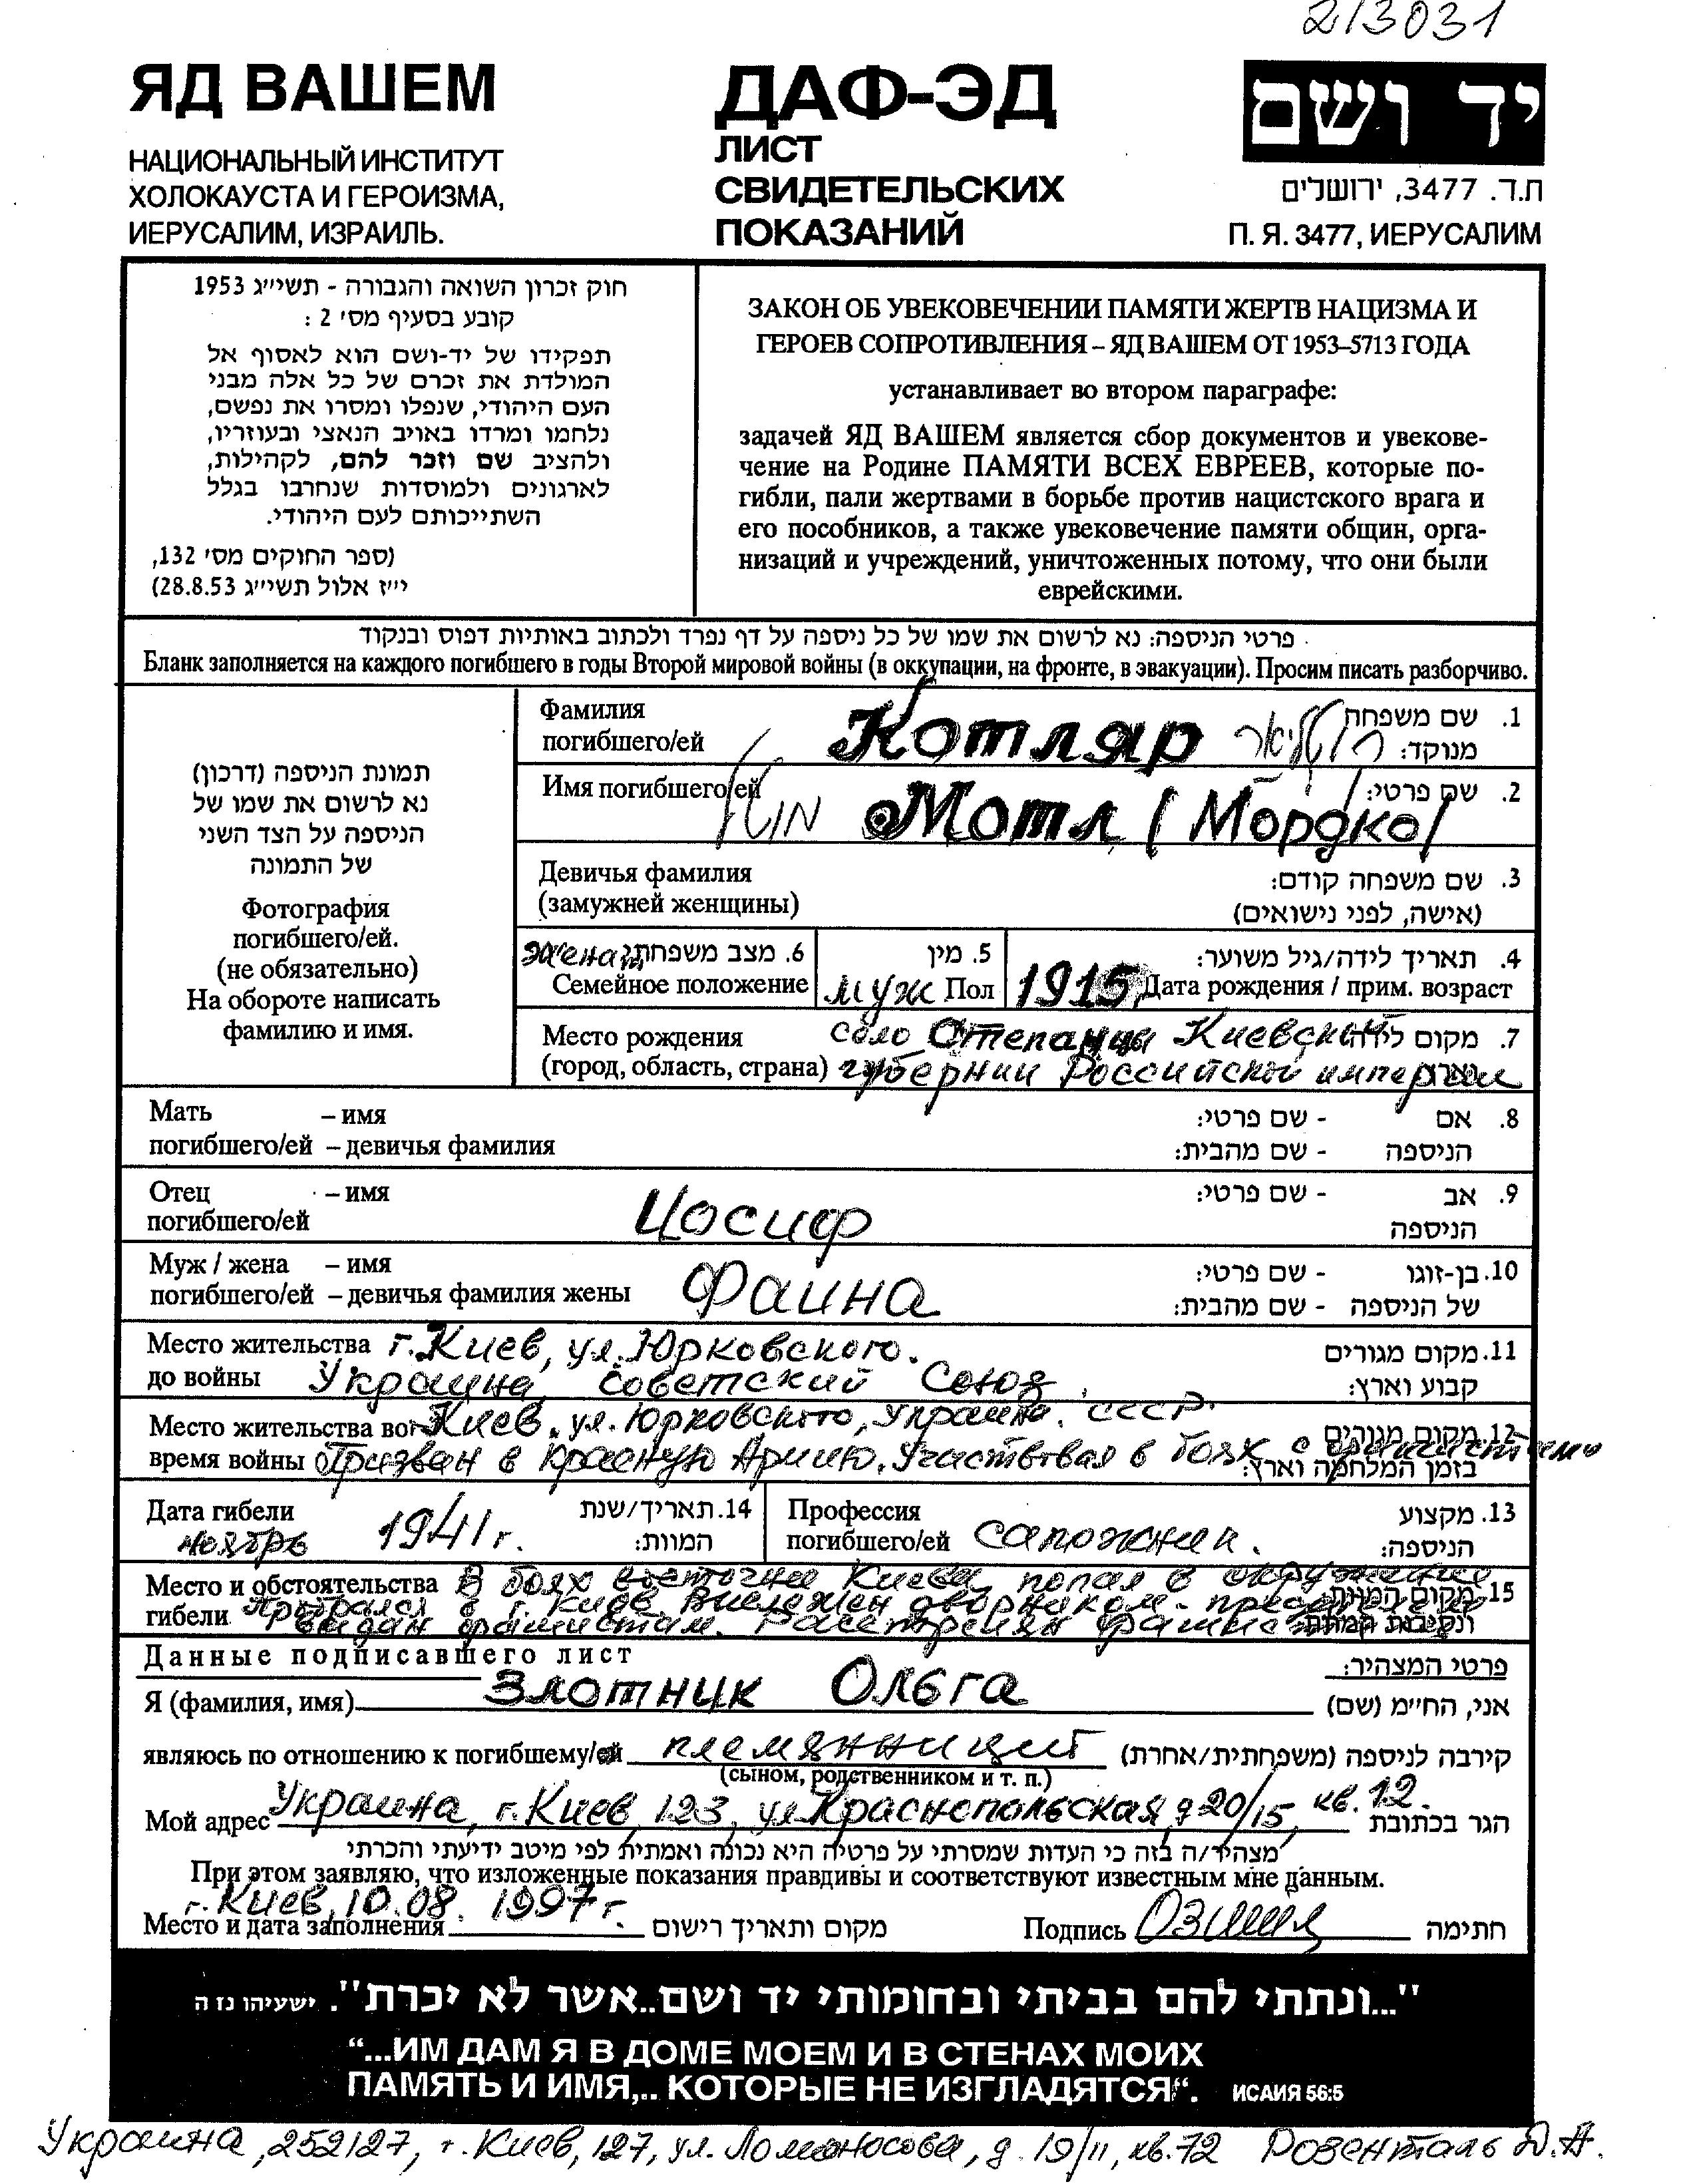 213031
ЯД ВАШЕМ
НАЦИОНАЛЬНЫЙ ИНСТИТУТ
ХОЛОКАУСТА И ГЕРОИЗМА,
ИЕРУСАЛИМ, ИЗРАИЛЬ.
ДАФ-ЭД
ЛИСТ
СВИДЕТЕЛЬСКИХ
ПОКАЗАНИЙ
יד ושם
ת.ד. 3477, ירושלים
П. Я. 3477, ИЕРУСАЛИМ
חוק זכרון השואה והגבורה - תשי״ג 1953
קובע בסעיף מס׳ 2 :
תפקידו של יד-ושם הוא לאסוף אל
המולדת את זכרם של כל אלה מבני
העם היהודי, שנפלו ומסרו את נפשם,
נלחמו ומרדו באויב הנאצי ובעוזריו,
ולהציב שם וזכר להם, לקהילות,
לארגונים ולמוסדות שנחרבו בגלל
השתייכותם לעם היהודי.
(ספר החוקים מס׳ 132,
י״ז אלול תשי״ג 28.8.53)
ЗАКОН ОБ УВЕКОВЕЧЕНИИ ПАМЯТИ ЖЕРТВ НАЦИЗМА И
ГЕРОЕВ СОПРОТИВЛЕНИЯ – ЯД ВАШЕМ ОТ 1953–5713 ГОДА
устанавливает во втором параграфе:
задачей ЯД ВАШЕМ является сбор документов и увекове-
чение на Родине ПАМЯТИ ВСЕХ ЕВРЕЕВ, которые по-
гибли, пали жертвами в борьбе против нацистского врага и
его пособников, а также увековечение памяти общин, орга-
низаций и учреждений, уничтоженных потому, что они были
еврейскими.
פרטי הניספה: נא לרשום את שמו של כל ניספה על דף נפרד ולכתוב באותיות דפוס ובנקוד
Бланк заполняется на каждого погибшего в годы Второй мировой войны (в оккупации, на фронте, в эвакуации). Просим писать разборчиво.
תמונת הניספה (דרכון)
נא לרשום את שמו של
הניספה על הצד השני
של התמונה
Фотография
погибшего/ей.
(не обязательно)
На обороте написать
фамилию и имя.
Фамилия
погибшего/ей
Котляр
קוטליאר
1. שם משפחה
מנוקד:
Имя погибшего/ей
מוטל
Мотл (Мордко)
2. שם פרטי:
Девичья фамилия
(замужней женщины)
3. שם משפחה קודם:
(אישה, לפני נישואים)
женат
6. מצב משפחתי:
Семейное положение
5. מין
муж Пол
1915
4. תאריך לידה/גיל משוער:
Дата рождения / прим. возраст
Место рождения
(город, область, страна)
село Степанцы Киевской
губернии Российской империи
7. מקום
Мать – имя
погибшего/ей – девичья фамилия
8. אם - שם פרטי:
הניספה - שם מהבית:
Отец – имя
погибшего/ей
Иосиф
9. אב - שם פרטי:
הניספה
Муж / жена – имя
погибшего/ей – девичья фамилия жены
Фаина
10. בן-זוגו - שם פרטי:
של הניספה - שם מהבית:
Место жительства
до войны
г. Киев, ул. Юрковского.
Украина, Советский Союз.
11. מקום מגורים
קבוע וארץ:
Место жительства во
время войны
Киев, ул. Юрковского, Украина. СССР.
Призван в Красную Армию. Участвовал в боях с фашистами
12. מקום מגורים
בזמן המלחמה וארץ:
Дата гибели
ноябрь 1941 г.
14. תאריך/שנת
המוות:
Профессия
погибшего/ей
сапожник.
13. מקצוע
הניספה:
Место и обстоятельства
гибели
В боях восточнее Киева попал в окружение
Пробрался в г. Киев. Выслежен дворником-
выдан фашистам. Расстрелян фашистами
15. מקום המוות
ונסיבות המוות:
Данные подписавшего лист
פרטי המצהיר:
Я (фамилия, имя) Злотник Ольга
אני, החי״מ (שם)
являюсь по отношению к погибшему/ей племянницей
קירבה לניספה (משפחתית/אחרת)
(сыном, родственником и т. п.)
Мой адрес Украина, г. Киев, 123, ул. Краснопольская, д 20/15, кв. 12.
הגר בכתובת
מצהיר/ה בזה כי העדות שמסרתי על פרטיה היא נכונה ואמתית לפי מיטב ידיעתי והכרתי
При этом заявляю, что изложенные показания правдивы и соответствуют известным мне данным.
г. Киев, 10.08. 1997 г.
Место и дата заполнения
מקום ותאריך רישום
Подпись
חתימה
"...ונתתי להם בביתי ובחומותי יד ושם..אשר לא יכרת". ישעיהו נז ה
“...ИМ ДАМ Я В ДОМЕ МОЕМ И В СТЕНАХ МОИХ
ПАМЯТЬ И ИМЯ,.. КОТОРЫЕ НЕ ИЗГЛАДЯТСЯ“. ИСАИЯ 56:5
Украина, 252127, г. Киев, 127, ул. Ломоносова, д. 19/11, кв. 72 Розенталь Д.А.